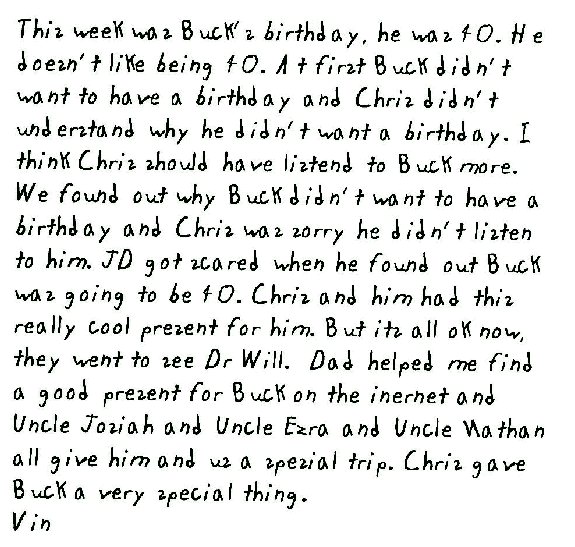 This week was Buck's birthday, he was 40. He
doesn't like being 40. At first Buck didn't
want to have a birthday and Chris didn't
understand why he didn't want a birthday. I
think Chris should have listend to Buck more.
We found out why Buck didn't want to have a
birthday and Chris was sorry he didn't listen
to him. JD got scared when he found out Buck
was going to be 40. Chris and him had this
really cool present for him. But its all ok now,
they went to see Dr Will. Dad helped me find
a good present for Buck on the inernet and
Uncle Josiah and Uncle Ezra and Uncle Nathan
all give him and us a spesial trip. Chris gave
Buck a very special thing.
Vin